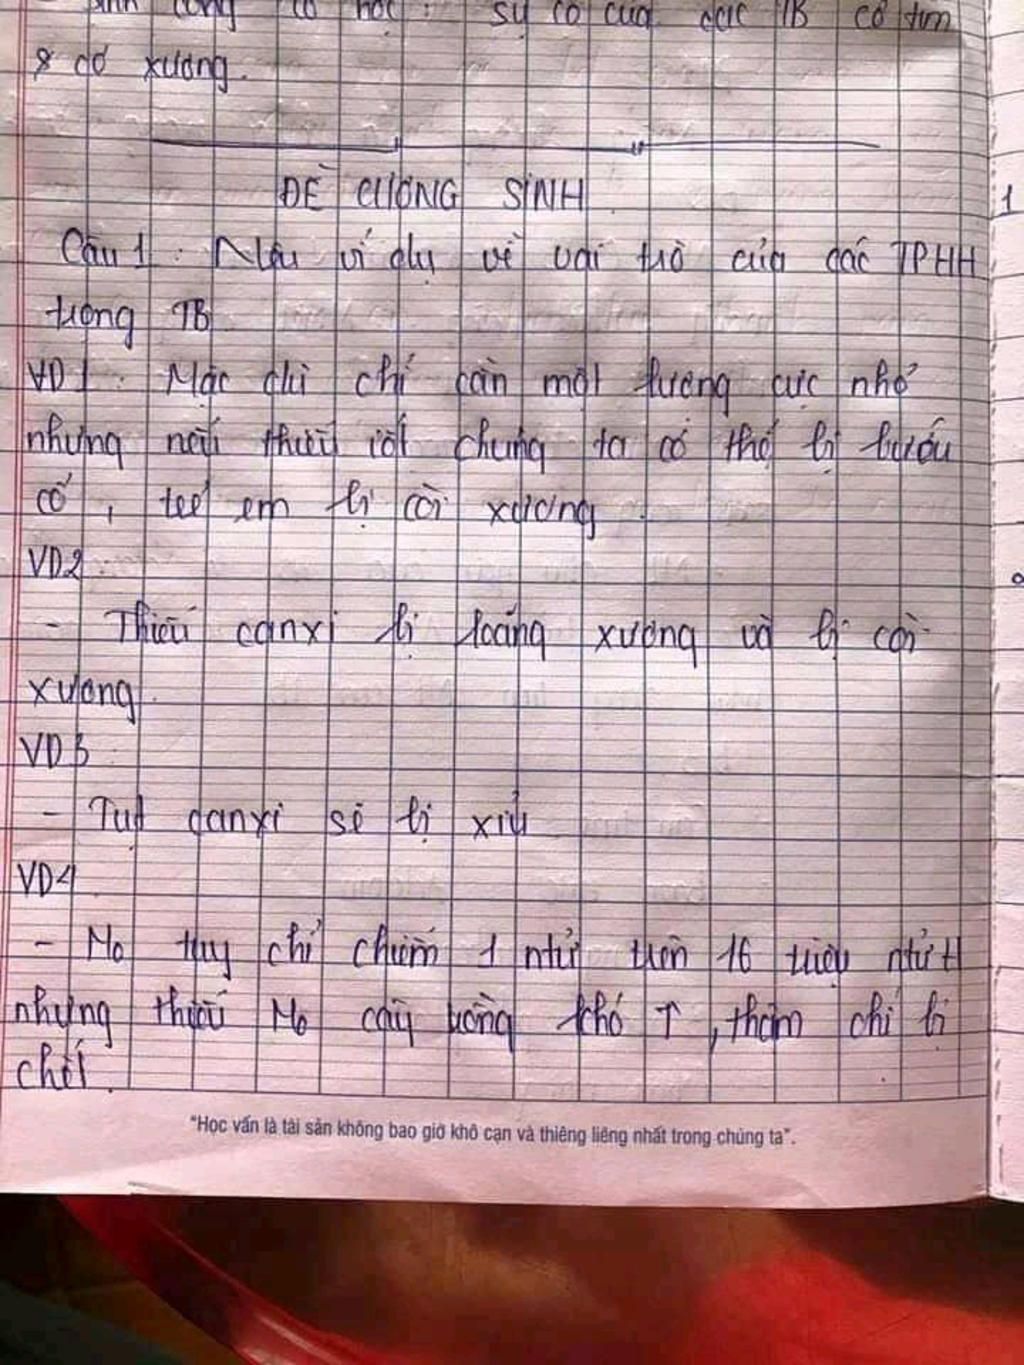 sinh công cơ học : sự co của các TB cơ tim
& cơ xương.
ĐỀ CƯƠNG SINH
Câu 1 : Nêu ví dụ về vai trò của các TPHH
trong TB
VD1 : Mặc dù chỉ cần một lượng cực nhỏ
nhưng nếu thiếu iốt chúng ta có thể bị bướu
cổ, trẻ em bị còi xương.
VD2
- Thiếu canxi bị loãng xương và bị còi
xương.
VD3
- Tụt canxi sẽ bị xỉu
VD4
- Mo tuy chỉ chiếm 1 ntử trên 16 triệu ntử H
nhưng thiếu Mo cây trồng khó ↑, thậm chí bị
chết.
"Học vấn là tài sản không bao giờ khô cạn và thiêng liêng nhất trong chúng ta".